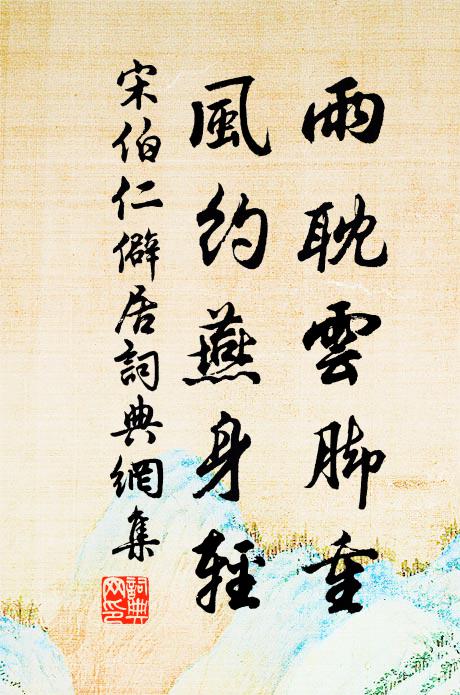 雨耽雲脚重
風約燕身輕
宋伯仁僻居詞典網集
詞典網印